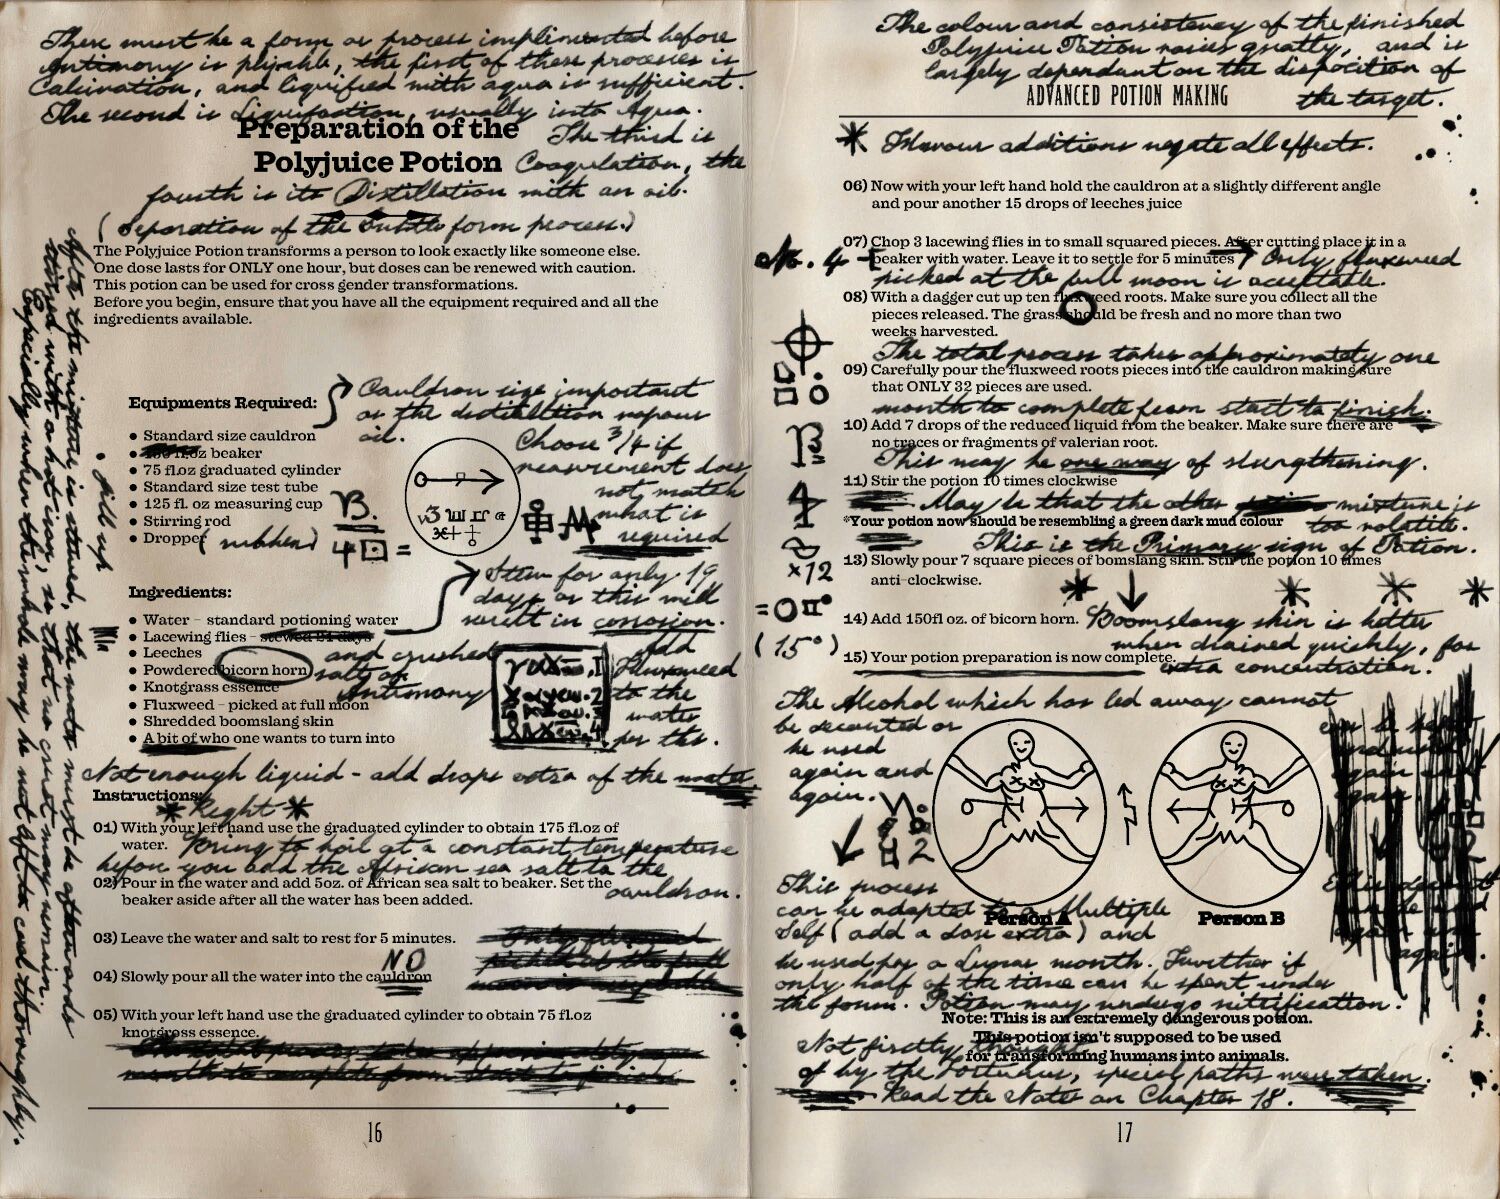 There must be a form or process implimented before
Antimony is payable, the first of these processes is
Calcination, and liquified with aqua is sufficient.
The second is Liquifaction, usually into Aqua.
Preparation of the
Polyjuice Potion
The third is
Coagulation, the
fourth is its Distillation with an oil.
(Seperation of the subtle form process.)
The Polyjuice Potion transforms a person to look exactly like someone else.
One dose lasts for ONLY one hour, but doses can be renewed with caution.
This potion can be used for cross gender transformations.
Before you begin, ensure that you have all the equipment required and all the
ingredients available.
Equipments Required:
Cauldron size important
or the distillation vapour
oil.
Choose 3/4 if
measurement does
not match
what is
required
• Standard size cauldron
• beaker
• 75 fl.oz graduated cylinder
• Standard size test tube
• 125 fl. oz measuring cup
• Stirring rod
• Dropper (rubber)
fill up
Ingredients:
Stew for only 19
days or this will
result in corrosion.
• Water - standard potioning water
• Lacewing flies - stewed 21 days
• Leeches
• Powdered bicorn horn
and crushed
salt or
Antimony
• Knotgrass essence
• Fluxweed - picked at full moon
• Shredded boomslang skin
• A bit of who one wants to turn into
Add
Fluxweed
to the
water
for this.
Not enough liquid - add drops extra of the water
Instructions:
Right
01) With your left hand use the graduated cylinder to obtain 175 fl.oz of
water.
Bring to boil at a constant temperature
before you add the African sea salt to the
cauldron.
02) Pour in the water and add 5oz. of African sea salt to beaker. Set the
beaker aside after all the water has been added.
03) Leave the water and salt to rest for 5 minutes.
NO
04) Slowly pour all the water into the cauldron
05) With your left hand use the graduated cylinder to obtain 75 fl.oz
knotgrass essence.
After the mixture is stewed, the nots must be afterwards
stirred with a hot iron, so that no crust may remain.
Especially when the whole may be not afterwards cool thoroughly.
16
The colour and consistency of the finished
Polyjuice Potion varies greatly, and is
largely dependant on the disposition of
the target.
ADVANCED POTION MAKING
Flavour additions negate all effects.
06) Now with your left hand hold the cauldron at a slightly different angle
and pour another 15 drops of leeches juice
07) Chop 3 lacewing flies in to small squared pieces. After cutting place it in a
beaker with water. Leave it to settle for 5 minutes
No. 4
Only fluxweed
picked at the full moon is acceptable.
08) With a dagger cut up ten fluxweed roots. Make sure you collect all the
pieces released. The grass should be fresh and no more than two
weeks harvested.
The total process takes approximately one
09) Carefully pour the fluxweed roots pieces into the cauldron making sure
that ONLY 32 pieces are used.
month to complete from start to finish.
10) Add 7 drops of the reduced liquid from the beaker. Make sure there are
no traces or fragments of valerian root.
This may be one way of strengthening.
11) Stir the potion 10 times clockwise
May be that the other mixture is
*Your potion now should be resembling a green dark mud colour
too volatile.
This is the Primary sign of Potion.
×12
13) Slowly pour 7 square pieces of bomslang skin. Stir the potion 10 times
anti-clockwise.
14) Add 150fl oz. of bicorn horn.
Boomslang skin is better
when drained quickly, for
extra concentration.
(15°)
15) Your potion preparation is now complete.
The Alcohol which has led away cannot
be decanted or
be used
again and
again.
Person A
Person B
This process
can be adapted to a Multiple
Self (add a dose extra) and
be used for a Lunar month. Further if
only half of the time can be spent under
the form. Potion may undergo nitrification.
Note: This is an extremely dangerous potion.
This potion isn't supposed to be used
for transforming humans into animals.
Not firstly thought
of by the Fortunus, special paths were taken.
Read the Notes on Chapter 18.
17